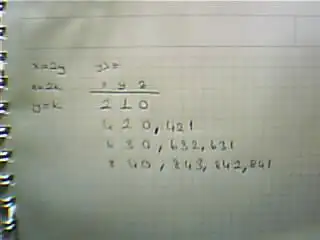 x=2y y>z
x=2k x y z
y=k 2 1 0
4 2 0, 421
6 3 0, 632, 631
8 4 0, 843, 842, 841